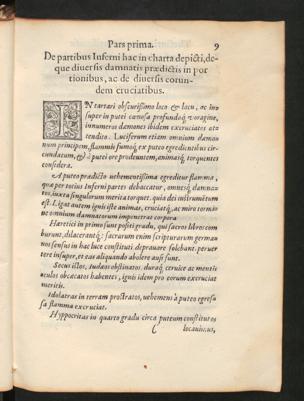 Pars prima. 9
De partibus Inferni hac in charta depicti, de-
que diuersis damnatis prædictis in por
tionibus, ac de diuersis eorun-
dem cruciatibus.
IN tartari obscurissimo loco & lacu, ac in-
super in putei cœnosa profundoq́; voragine,
innumeros dæmones ibidem excruciatos ata
tendito. Luciferum etiam omnium dæmon
num principem, flammis fumoq́; ex puteo egredientibus cir-
cundatum, & à putei ore prodeuntem, animasq́; torquentes
considera.
A puteo prædicto vehementissima egreditur flamma,
quæ per totius Inferni partes debaccatur, omnesq́; damna-
tos, iuxta singulorum merita torquet. quia dei instrumentum
est. Ligat autem ignis iste animas, cruciatq́; ac miro tormẽ
to omnium damnatorum impenetrat corpora
Hæretici in primo sunt positi gradu, qui sacros libros com
burunt, dilacerantq́; : sacrarum enim scripturarum germa
nos sensus in hac luce constituti, deprauare solebant, peruer
tere insuper, et eas aliquando abolere ausi sunt.
Secus istos, Iudæos obstinatos, duraq́; ceruice ac mentis
oculos obcæcatos habentes, ignis idem pro eorum excruciat
meritis.
Idolatras in terram prostratos, vehemens à puteo egres-
sa flamma excruciat.
Hyppocritas in quarto gradu circa puteum constitutos
C locauimus,